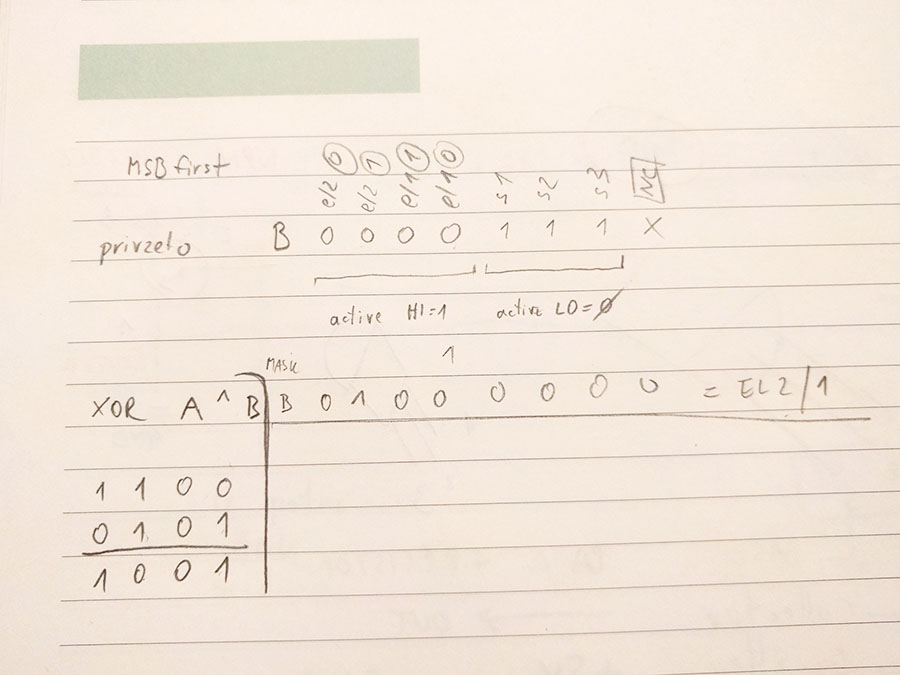 MSB first
el2 0 el2 1 el1 1 el1 0 s1 s2 s3 NC
privzeto B 0 0 0 0 1 1 1 X
active HI=1 active LO=0
1
MASK
XOR A ^ B B 0 1 0 0 0 0 0 0 = EL2/1
1 1 0 0
0 1 0 1
1 0 0 1